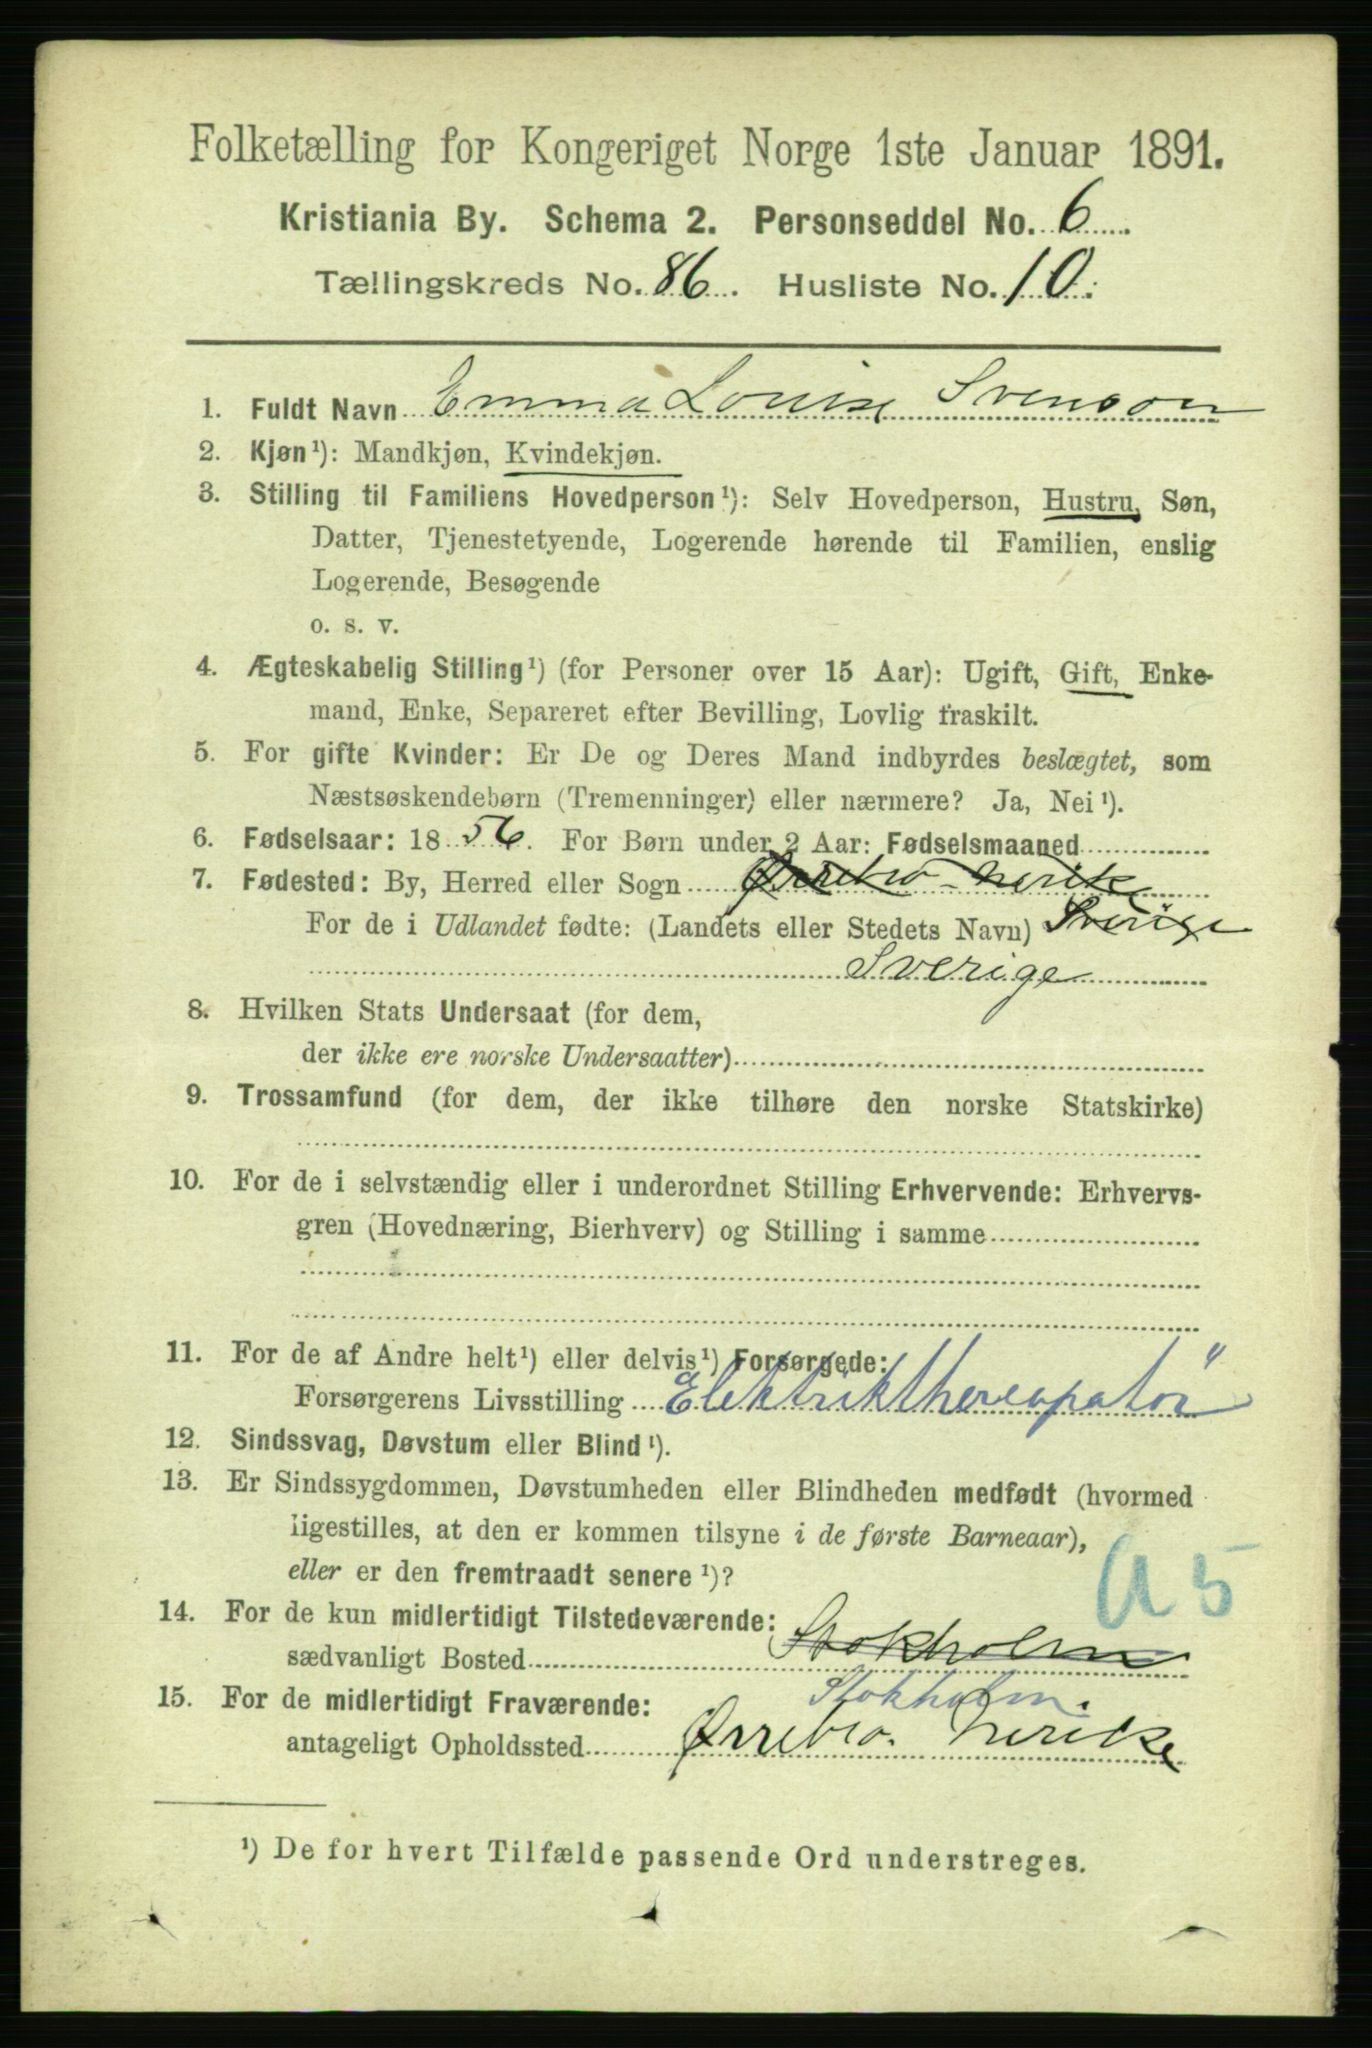 Folketælling for Kongeriget Norge 1ste Januar 1891.
Kristiania By. Schema 2. Personseddel No. 6
Tællingskreds No. 86. Husliste No. 10.
1. Fuldt Navn Emma Louise Svenson
2. Kjøn¹): Mandkjøn, Kvindekjøn.
3. Stilling til Familiens Hovedperson¹): Selv Hovedperson, Hustru, Søn,
Datter, Tjenestetyende, Logerende hørende til Familien, enslig
Logerende, Besøgende
o. s. v.
4. Ægteskabelig Stilling¹) (for Personer over 15 Aar): Ugift, Gift, Enke-
mand, Enke, Separeret efter Bevilling, Lovlig fraskilt.
5. For gifte Kvinder: Er De og Deres Mand indbyrdes beslægtet, som
Næstsøskendebørn (Tremenninger) eller nærmere? Ja, Nei¹).
6. Fødselsaar: 1856. For Børn under 2 Aar: Fødselsmaaned
7. Fødested: By, Herred eller Sogn Ørrebro Nerike
For de i Udlandet fødte: (Landets eller Stedets Navn) Sverige
Sverige
8. Hvilken Stats Undersaat (for dem,
der ikke ere norske Undersaatter)
9. Trossamfund (for dem, der ikke tilhøre den norske Statskirke)
10. For de i selvstændig eller i underordnet Stilling Erhvervende: Erhvervs-
gren (Hovednæring, Bierhverv) og Stilling i samme
11. For de af Andre helt¹) eller delvis¹) Forsørgede:
Forsørgerens Livsstilling "Elektriktherapator"
12. Sindssvag, Døvstum eller Blind¹).
13. Er Sindssygdommen, Døvstumheden eller Blindheden medfødt (hvormed
ligestilles, at den er kommen tilsyne i de første Barneaar),
eller er den fremtraadt senere¹)?
a 5
14. For de kun midlertidigt Tilstedeværende:
sædvanligt Bosted Stokholm
Stokholm.
15. For de midlertidigt Fraværende:
antageligt Opholdssted Ørrebro. Nerike
¹) De for hvert Tilfælde passende Ord understreges.